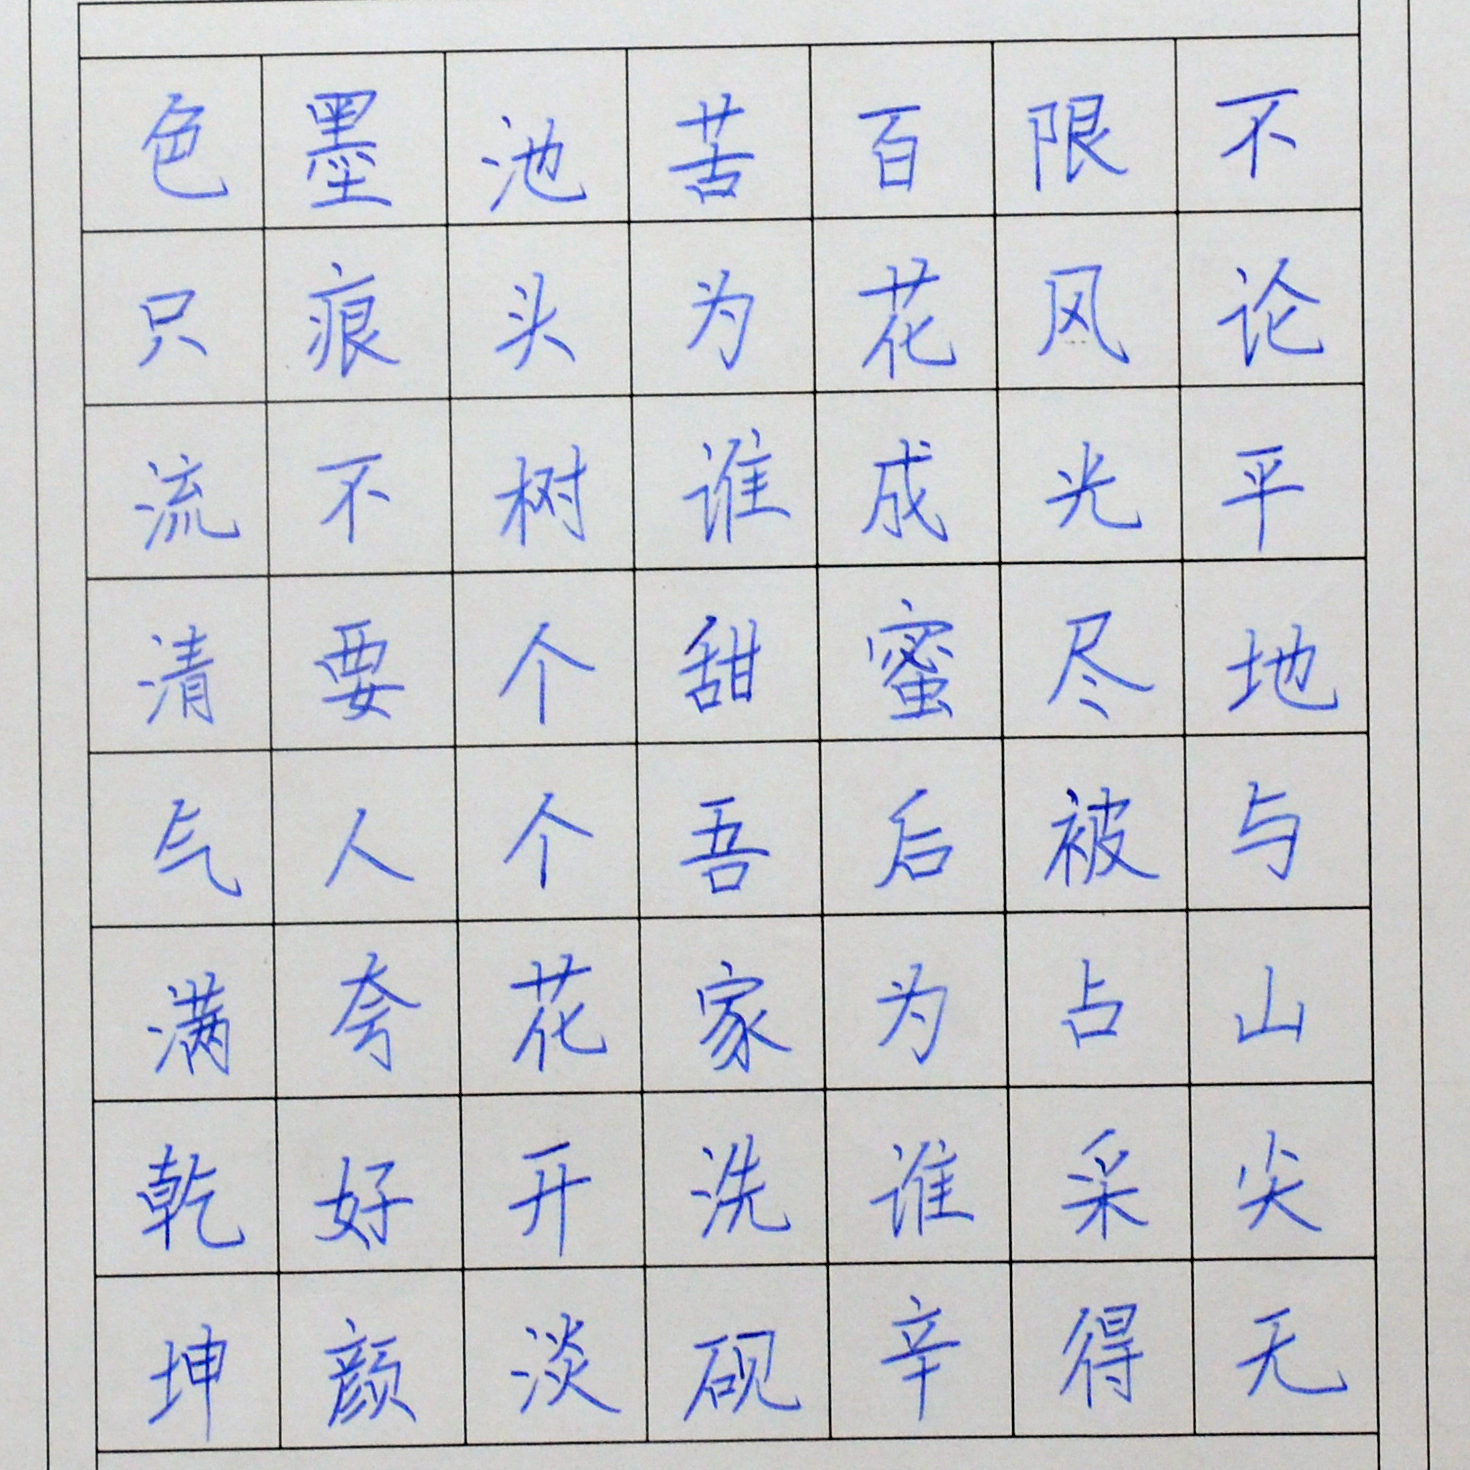 不论平地与山尖无
限风光尽被占采得
百花成蜜后为谁辛
苦为谁甜吾家洗砚
池头树个个花开淡
墨痕不要人夸好颜
色只流清气满乾坤